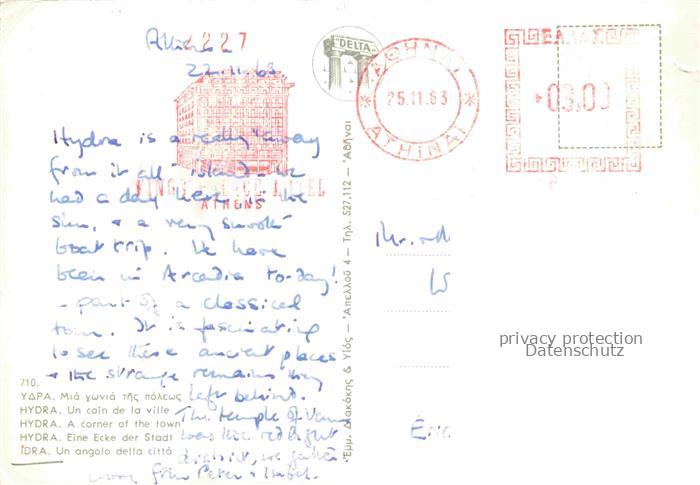 Athens
2227
22.11.63.
Hydra is a really "away
from it all" island - we
had a day here in the
sun, & a very smooth
boat trip. We have
been in Arcadia to-day!
- part of a classical
tour. It is fascinating
to see these ancient places
& the strange remains they
left behind.
The temple of Venus
was the red light
district, we gather
love from Peter & Isabel.
KING'S PALACE HOTEL
ATHENS
710.
ΥΔΡΑ. Μιά γωνιά τῆς πόλεως
HYDRA. Un coin de la ville
HYDRA. A corner of the town
HYDRA. Eine Ecke der Stadt
IDRA. Un angolo della città
"DELTA"
Ἐμμ. Διακάκης & Υἱός — Ἀπελλοῦ 4 — Τηλ. 527.112 — Ἀθῆναι
ΑΘΗΝΑΙ
25.11.63
ATHINAI
ΕΛΛΑΣ
03.00
Mr. and
W
privacy protection
Datenschutz